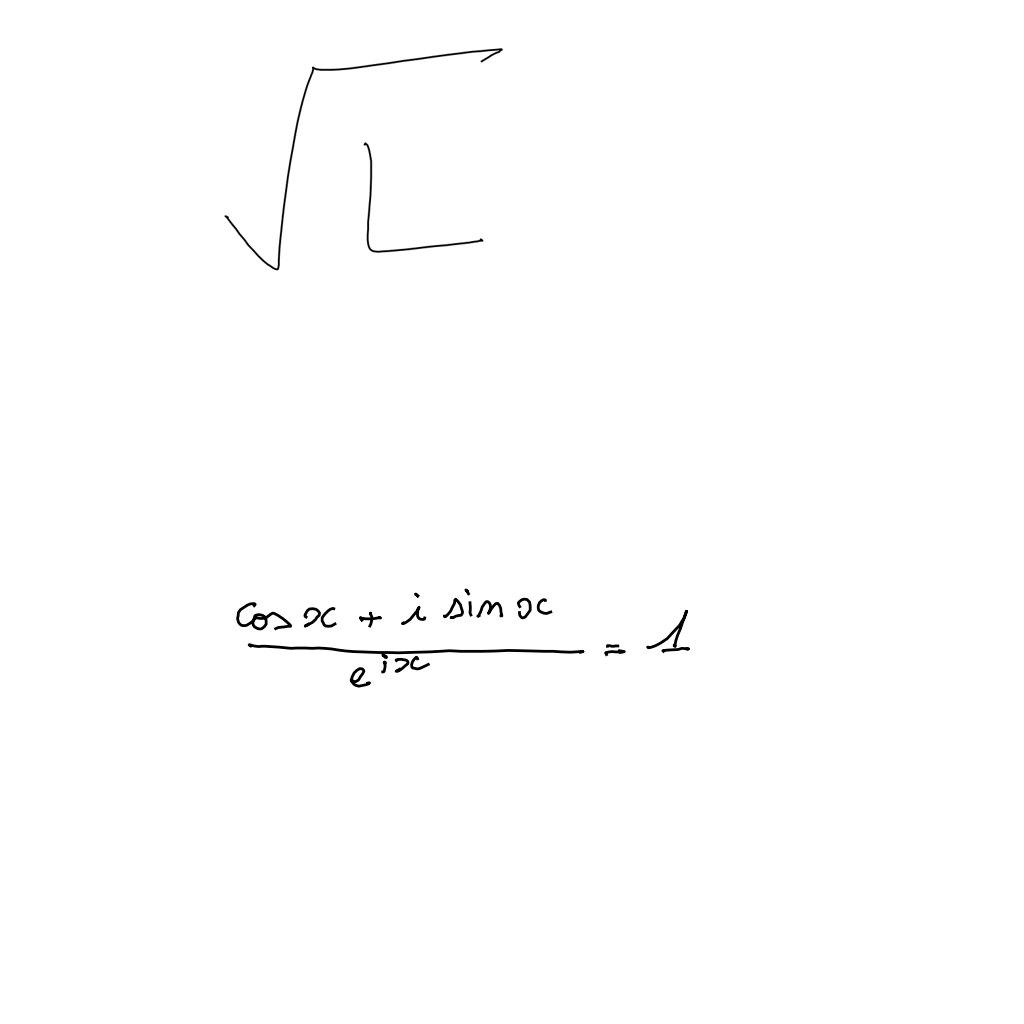 √L
(cos x + i sin x) / e^{ix} = 1